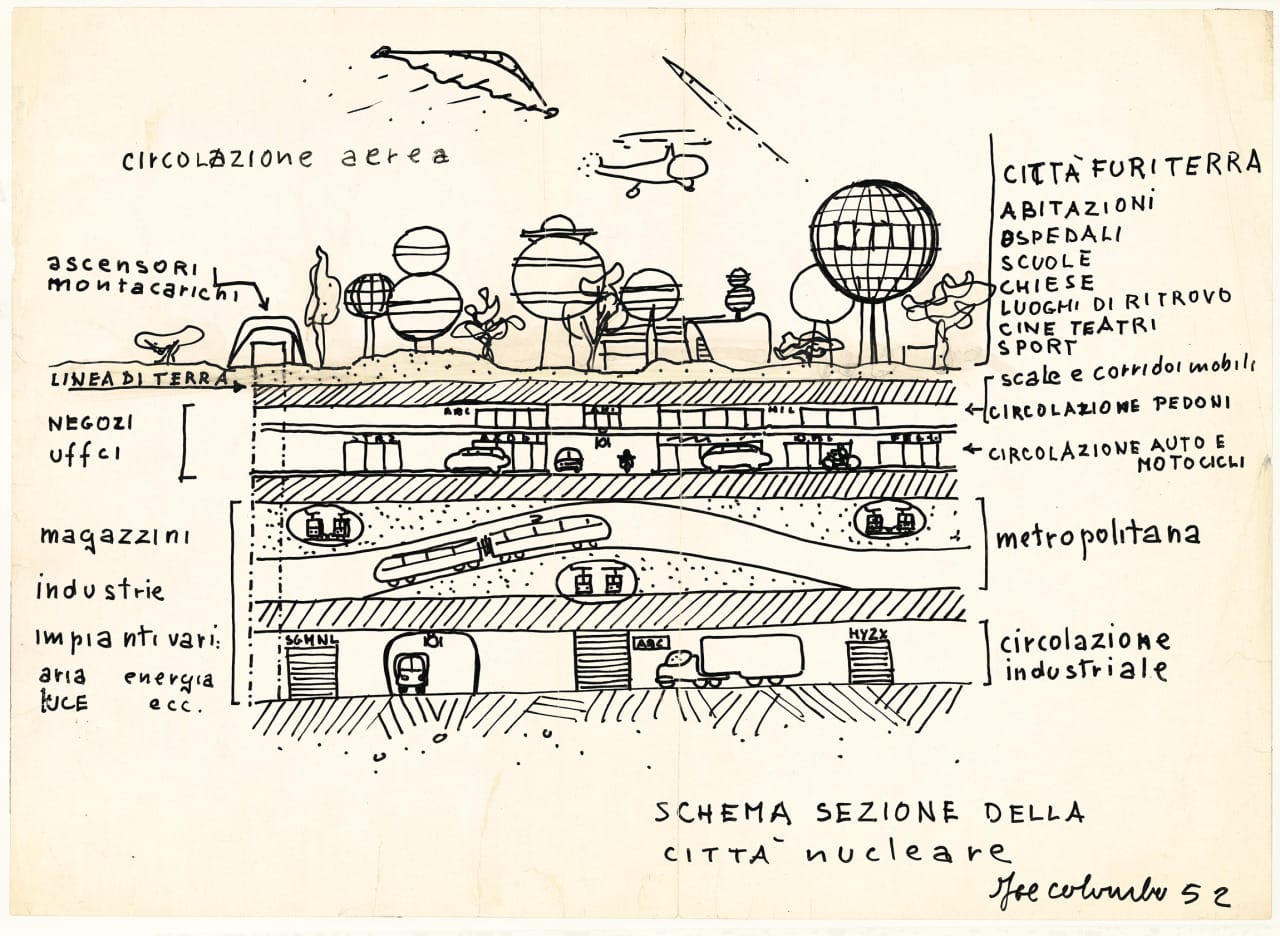 circolazione aerea
ascensori
montacarichi
LINEA DI TERRA
NEGOZI
uffci
magazzini
industrie
impianti vari:
aria energia
LUCE ecc.
CITTÀ FURITERRA
ABITAZIONI
OSPEDALI
SCUOLE
CHIESE
LUOGHI DI RITROVO
CINE TEATRI
SPORT
scale e corridoi mobili
CIRCOLAZIONE PEDONI
CIRCOLAZIONE AUTO E
MOTOCICLI
metropolitana
circolazione
industriale
ABC
MIL
SGMNL
ABC
HYZX
SCHEMA SEZIONE DELLA
CITTÀ nucleare
Joe colombo 52